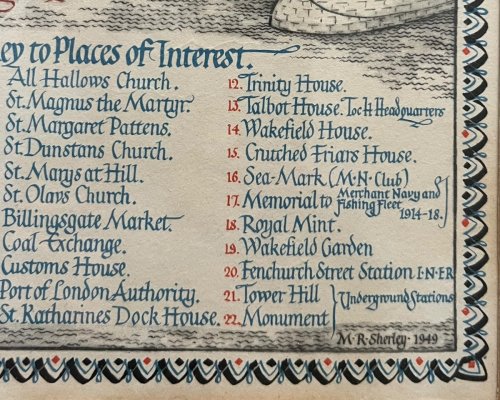 ey to Places of Interest.
All Hallows Church.
St. Magnus the Martyr.
St. Margaret Pattens.
St. Dunstans Church.
St. Marys at Hill.
St. Olavs Church.
Billingsgate Market.
Coal Exchange.
Customs House.
Port of London Authority.
St. Katharines Dock House.
12. Trinity House.
13. Talbot House. Toc H Headquarters
14. Wakefield House.
15. Crutched Friars House.
16. Sea-Mark (M·N·Club)
17. Memorial to Merchant Navy and
Fishing Fleet
1914-18.
18. Royal Mint.
19. Wakefield Garden
20. Fenchurch Street Station L·N·E·R
21. Tower Hill
22. Monument
Underground Stations
M·R·Sherley·1949